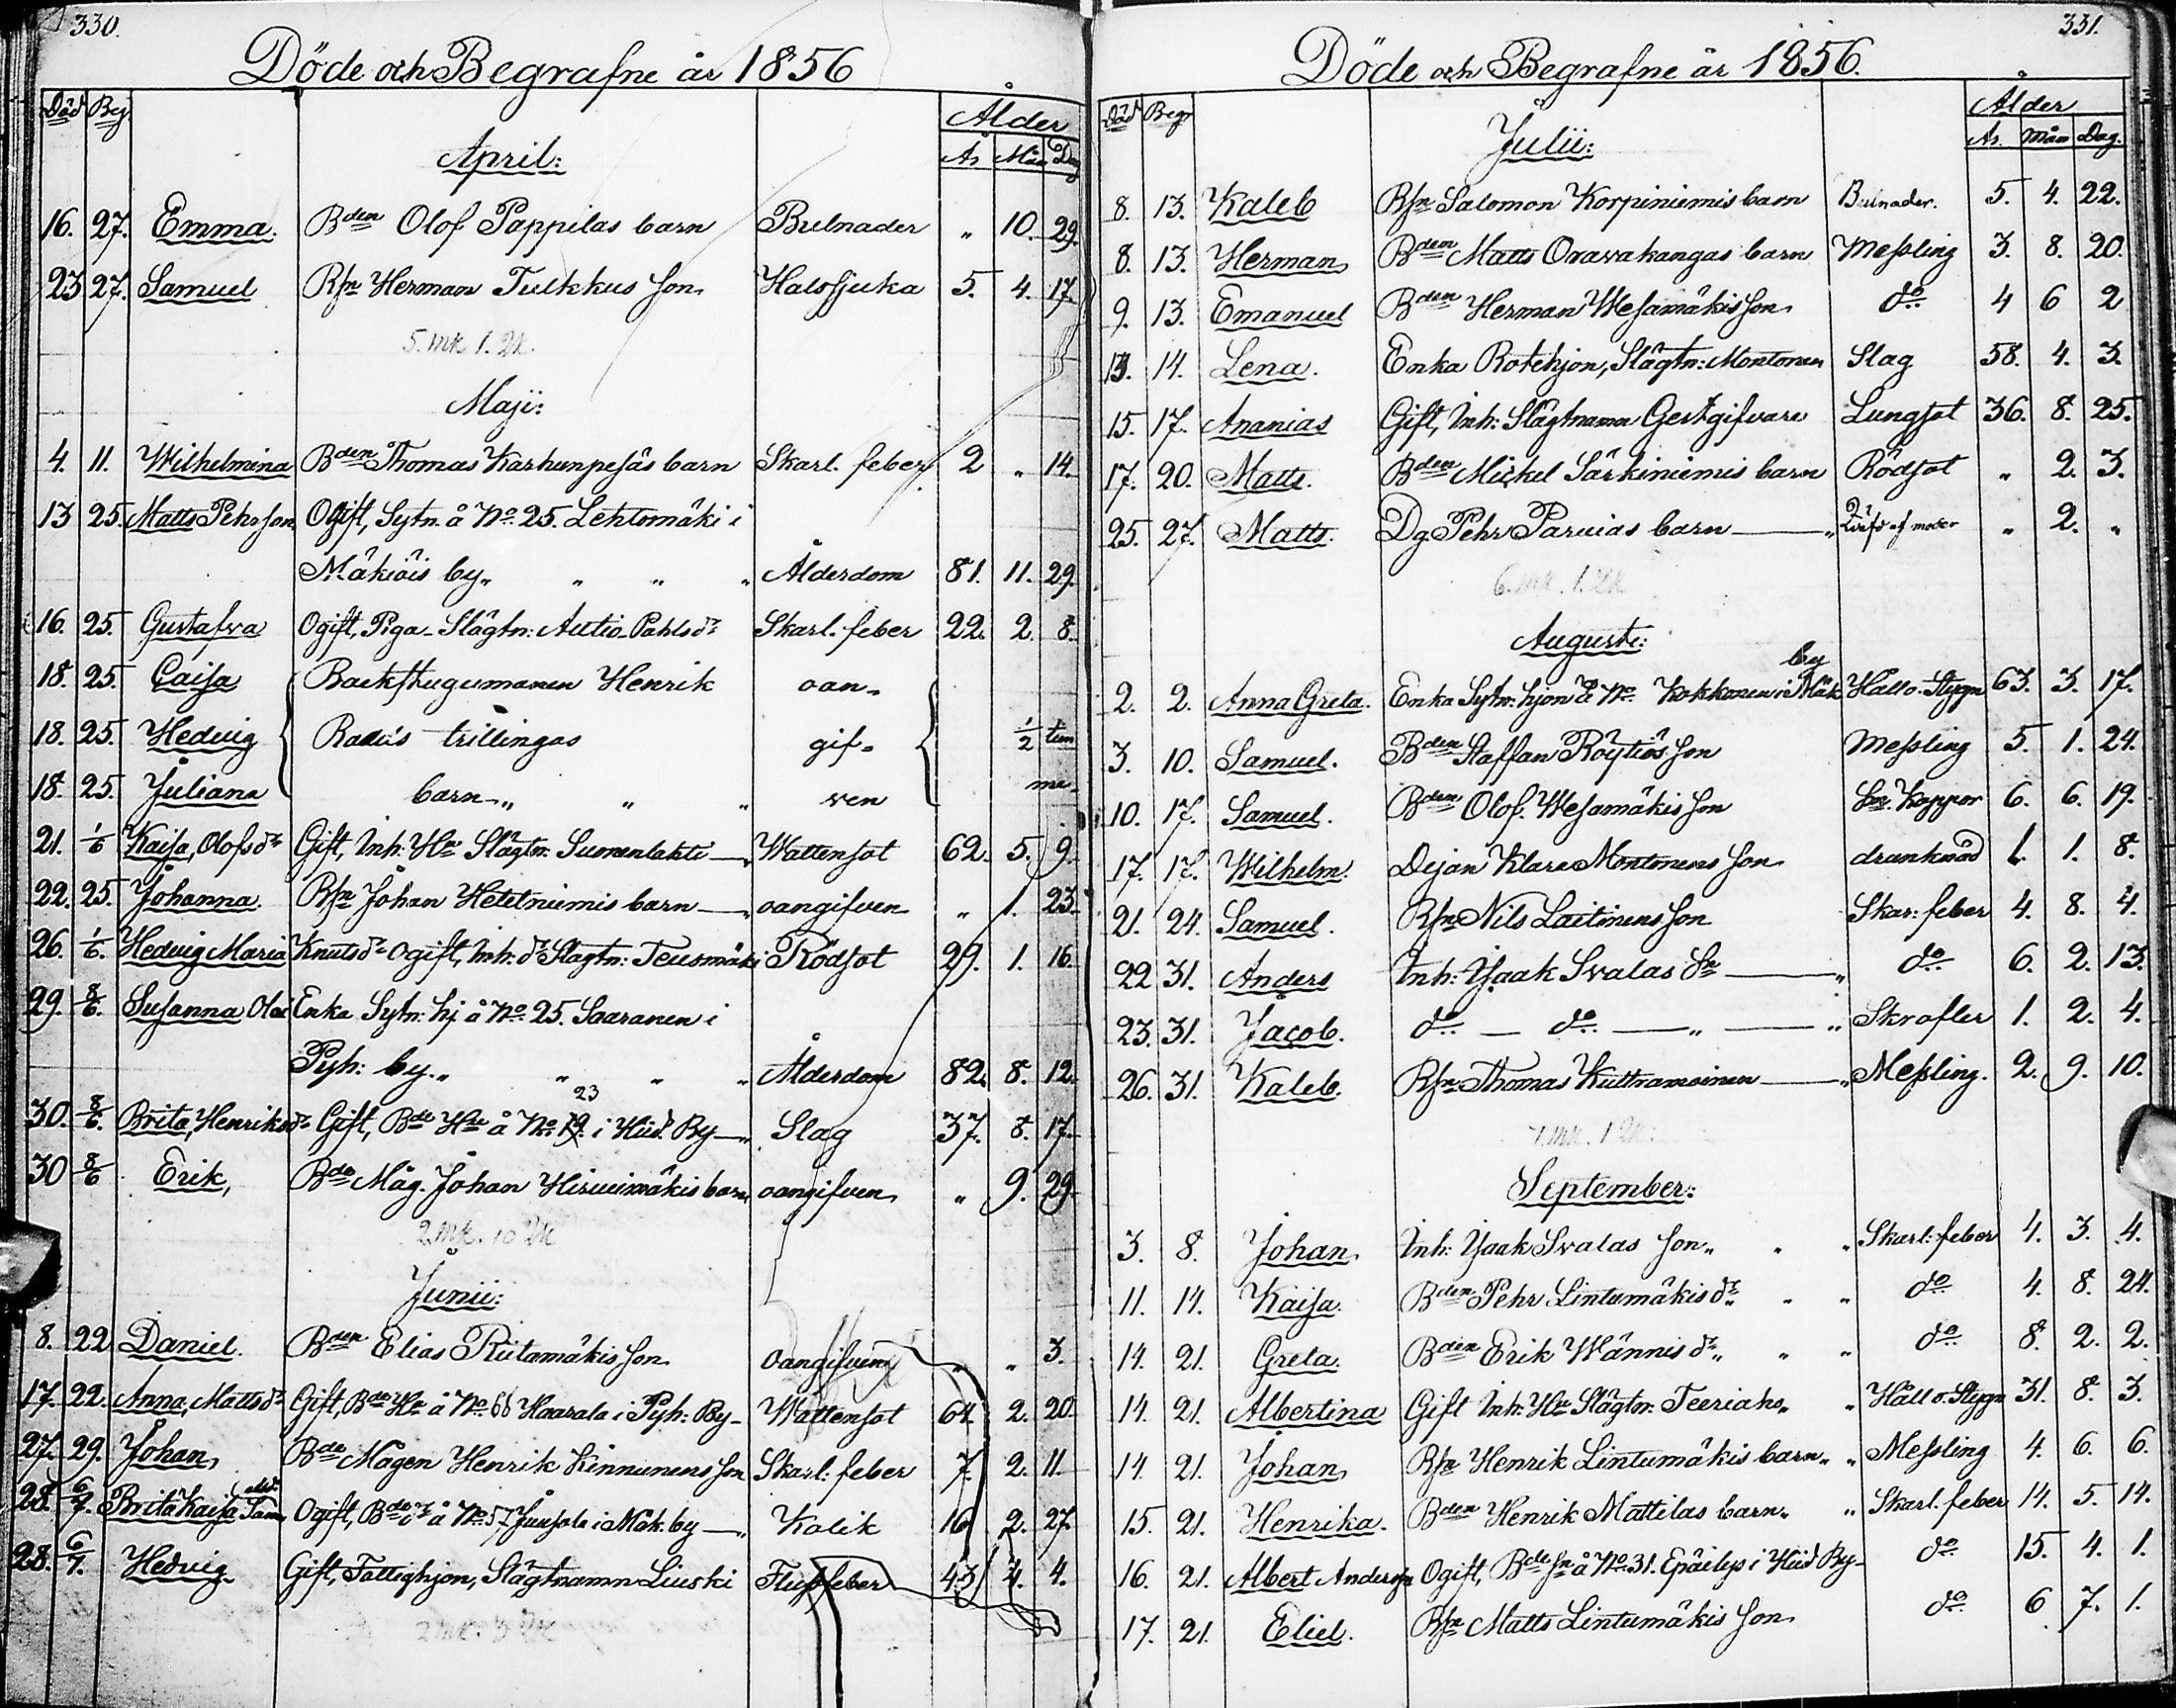 330.
Döde och Begrafne år 1856
Död Begr Ålder
År Mån Dag
April:
16. 27. Emma. Bden Olof Pappilas barn Bulnader " 10. 29.
23 27. Samuel Rfn Herman Tulkkus son Halssjuka 5. 4. 17.
5. mk. 1. Qk.
Maji:
4. 11. Wilhelmina Bden Thomas Karhunpesäs barn Skarl. feber 2 " 14.
13 25. Matts Pehrson Ogift, Sytn. å No. 25. Lehtomäki i
Mäkiöis by " " " Ålderdom 81. 11. 29.
16. 25. Gustafva Ogift, Piga Slägtn: Autio Pahlsdr Skarl. feber 22. 2. 8.
18. 25. Caisa Backstugumannen Henrik oan-
18. 25. Hedvig trillingas gif- 1/2 tim
18. 25. Juliana barn " " " ven me
21. 1/6 Kaisa, Olofsdr Gift, Inh: Hu Slägtn: Suomenlahti Wattensot 62. 5. 9.
22. 25. Johanna. Rfn Johan Heteniemis barn oangifven " 1. 23.
26. 1/6. Hedvig Maria Knutsdr Ogift, Inh. dr Slagtn: Teusmäki Rödsot 29. 1. 16
29. 8/6. Susanna Enka Sytn: hj å No. 25. Saaranen i
Pyh: by. " " " " Ålderdom 82. 8. 12.
23
30. 8/6. Brita, Henriksdr Gift, Bde Hu å No. 19. i Hiid. By Slag 37. 8. 17.
30 8/6 Erik, Bde Måg. Johan Hirvimäkis barn oangifven " 9. 29.
2 mk. 10 Qk
Junii:
8. 22 Daniel. Bden Elias Riitamäkis son oangifven " " 3.
17. 22. Anna, Mattsdr Gift, Bde Hu å No. 66 Haarala i Pyh: By Wattensot 64. 2. 20.
27. 29. Johan, Bde Mågen Henrik Kinnunens son Skarl: feber 7. 2. 11.
28. 6/7. Brita Kaisa Ogift, Bde dr å No. 57 Junsola i Mäk. by Kolik 16 2. 27
28. 6/7. Hedvig Gift, Fattighjon, Slägtnamn Liuski Flussfeber 43 4. 4.
331.
Döde och Begrafne år 1856.
Död Begr Ålder
År. Mån Dag.
Julii:
8. 13. Kaleb Rfn Salomon Korpiniemis barn Bulnader. 5. 4. 22.
8. 13. Herman Bden Matts Oravakangas barn Messling 3. 8. 20.
9. 13. Emanuel Bden Herman Wesamäkis son do 4 6 2
13. 14. Lena. Enka Rotehjon, Slägtn: Montonen Slag 58. 4. 3.
15. 17. Ananias Gift, Inh: Slägtnamn Gestgifvare Lungsot 36. 8. 25.
17. 20. Matts. Bden Mickel Särkiniemis barn Rödsot " 2. 3.
25. 27. Matts. Dg. Pehr Parvias barn Qväfd af moder " 2. "
6. mk. 1. Qk
Augusti:
by
2. 2. Anna Greta. Enka Sytn: hjon å No. Kokkonen i Mäk Håll o. Stygn 63. 3. 17.
3. 10. Samuel. Bden Staffan Röytiös son Messling 5. 1. 24.
10. 17. Samuel. Bden Olof. Wesamäkis son Sm. Koppor 6. 6. 19.
17. 17. Wilhelm. Dejan Klara Montonens son drunknad 1. 1. 8.
21. 24. Samuel. Rfn Nils Laitinens son Skar: feber 4. 8. 4.
22 31. Anders Inh: Isaak Svalas Sn " do 6. 2. 13.
23. 31. Jacob. do — do — " — " Skrofler 1. 2. 4.
26. 31. Kaleb. Rfn Thomas Kuttramoinen " Messling. 2. 9. 10.
7. mk. 1 Qk.
September:
3. 8. Johan Inh: Isaak Svalas son " " " Skarl: feber 4. 3. 4.
11. 14. Kaisa. Bden Pehr Lintumäkis dr " " " do 4. 8. 24.
14. 21. Greta. Bden Erik Wännis dr " " " do 8. 2. 2.
14. 21. Albertina Gift Inh: Hu Slägtn: Teeriaho " " Håll o. Stygn 31. 8. 3.
14. 21. Johan Rfn Henrik Lintumäkis barn " " Messling 4. 6. 6.
15. 21. Henrika. Bden Henrik Mattilas barn " " Skarl. feber 14. 5. 14.
16. 21. Albert Andersn Ogift, Bde sn å No. 31. Epäilys i Hiid By do 15. 4. 1.
17. 21. Eliel. Rfn Matts Lintumäkis son do 6 7. 1.